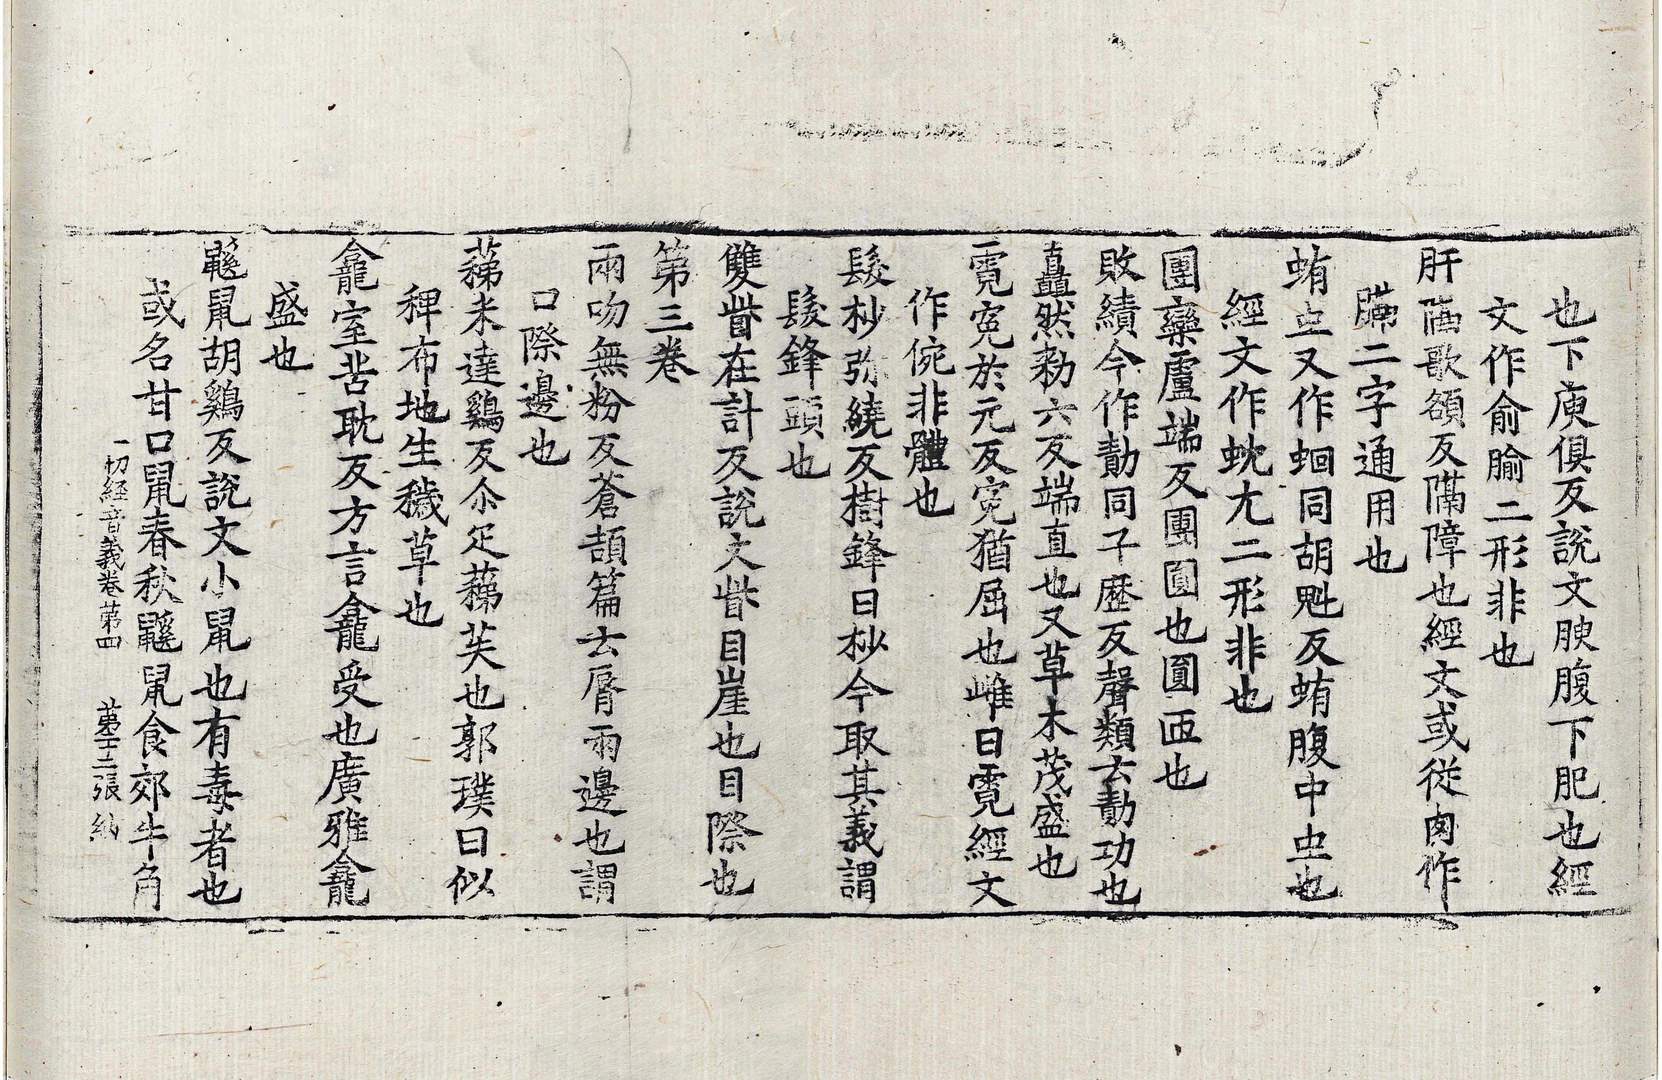 也下庾俱反說文腴腹下肥也經
文作俞腧二形非也
肝鬲歌頟反隔障也經文或從肉作
膈二字通用也
蛕虫又作蛔同胡魁反蛕腹中虫也
經文作蚘尤二形非也
團欒盧端反團圓也圓匝也
敗績今作勣同子歷反聲類云勣功也
矗然勑六反端直也又草木茂盛也
霓寃於元反寃猶屈也雌曰霓經文
作惋非體也
髮杪弥繞反樹鋒曰杪今取其義謂
髮鋒頭也
雙眥在計反說文眥目崖也目際也
第三卷
兩吻無粉反蒼頡篇云脣兩邊也謂
口際邊也
䅖米達鷄反尒疋䅖芵也郭璞曰似
稗布地生穢草也
龕室苦耽反方言龕受也廣雅龕
盛也
鼷鼠胡鷄反說文小鼠也有毒者也
或名甘口鼠春秋鼷鼠食郊牛角
一切経音義卷第四　第十二張　納